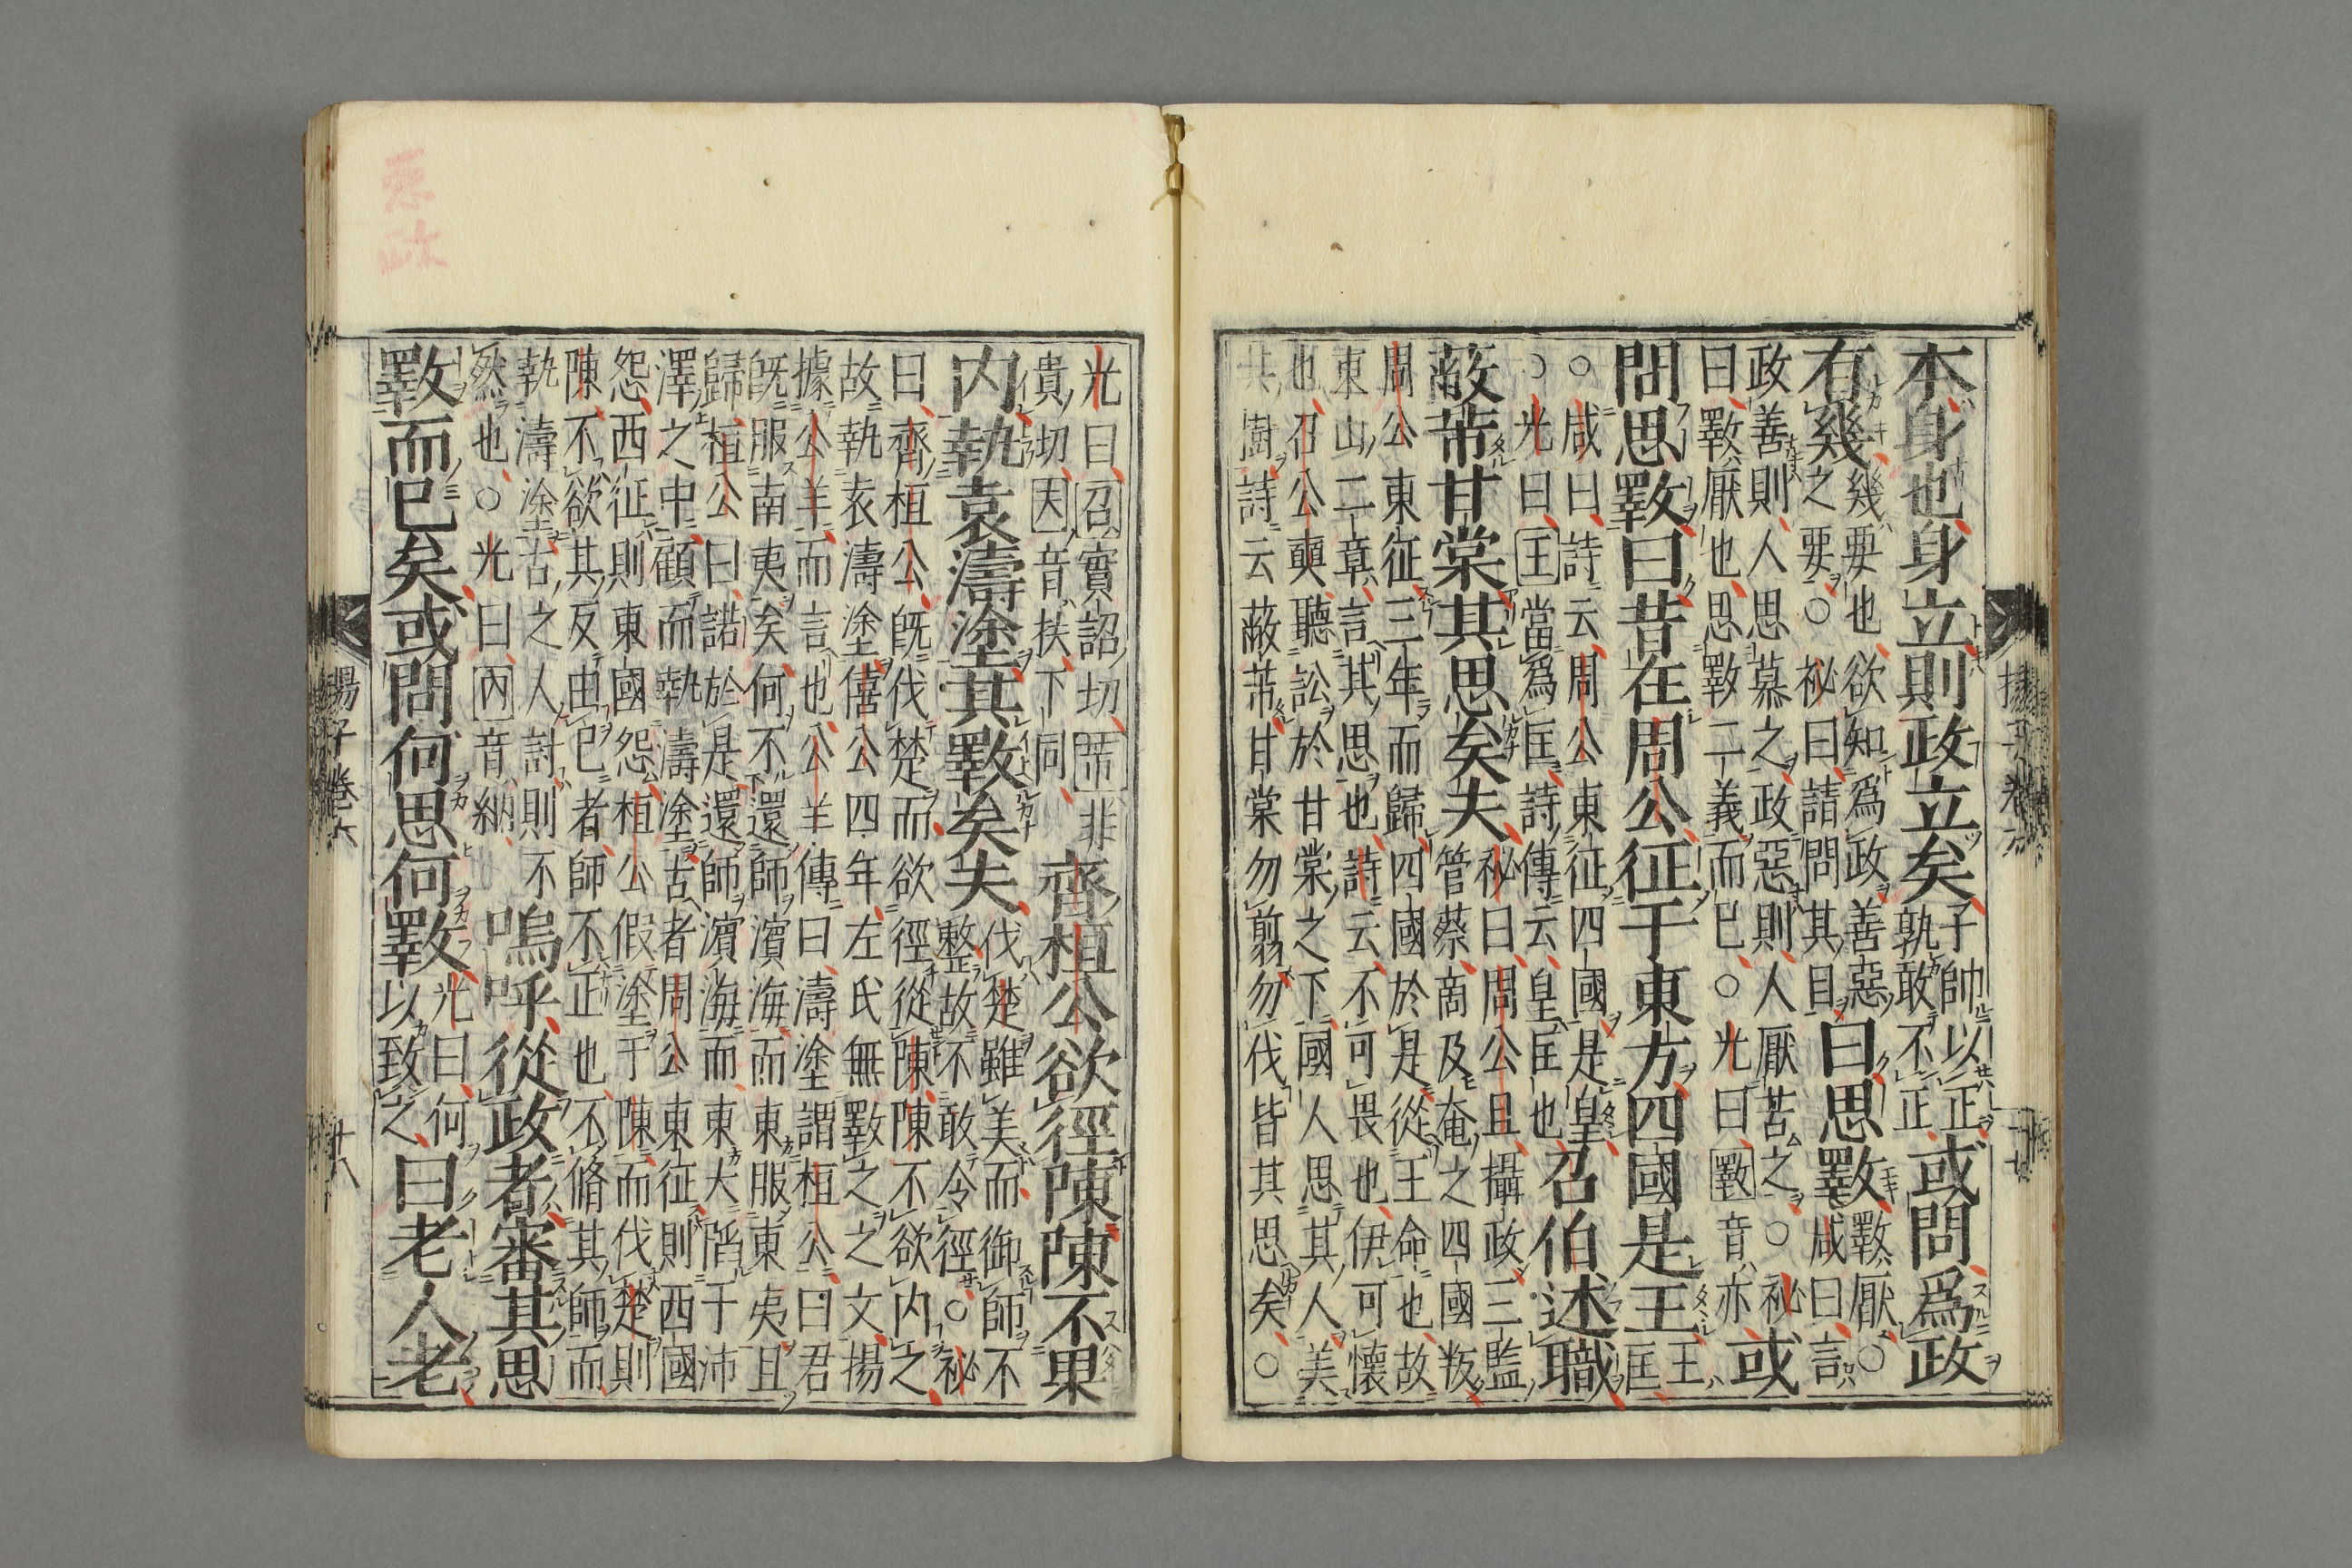 本身也身立則政立矣子帥以正孰敢不正或問爲政
有幾幾要也欲知爲政善惡之要○祕曰請問其目曰思斁斁厭○咸曰言
政善則人思慕之政惡則人厭苦之○祕曰斁厭也思斁二義而已○光曰斁音亦或
問思斁曰昔在周公征于東方四國是王王匡
○咸曰詩云周公東征四國是皇○光曰王當爲匡詩傳云皇匡也召伯述職
蔽芾甘棠其思矣夫祕曰周公且攝政三監管蔡商及奄之四國叛
周公東征三年而歸四國於是從王命也故東山二章言其思也詩云不可畏也伊可懷
也召公奭聽訟於甘棠之下國人思其人美共樹詩云蔽芾甘棠勿翦勿伐皆其思矣○
光曰召實詔切芾非貴切因音扶下同齊桓公欲徑陳陳不果
内執袁濤塗其斁矣夫伐楚雖美而御師不整故不敢令徑○祕
曰齊桓公既伐楚而欲徑從陳陳不欲内之故執袁濤塗僖公四年左氏無斁之之文揚
據公羊而言也公羊傳曰濤塗謂桓公曰君既服南夷矣何不還師濱海而東服東夷且
歸桓公曰諾於是還師濱海而東大䧟于沛澤之中顧而執濤塗古者周公東征則西國
怨西征則東國怨桓公假塗于陳而伐楚則陳不欲其反由已者師不正也不脩其師而
執濤塗古之人討則不然也○光曰內音納嗚呼從政者審其思
斁而已矣或問何思何斁光曰何以致之曰老人老
揚子卷六
十八